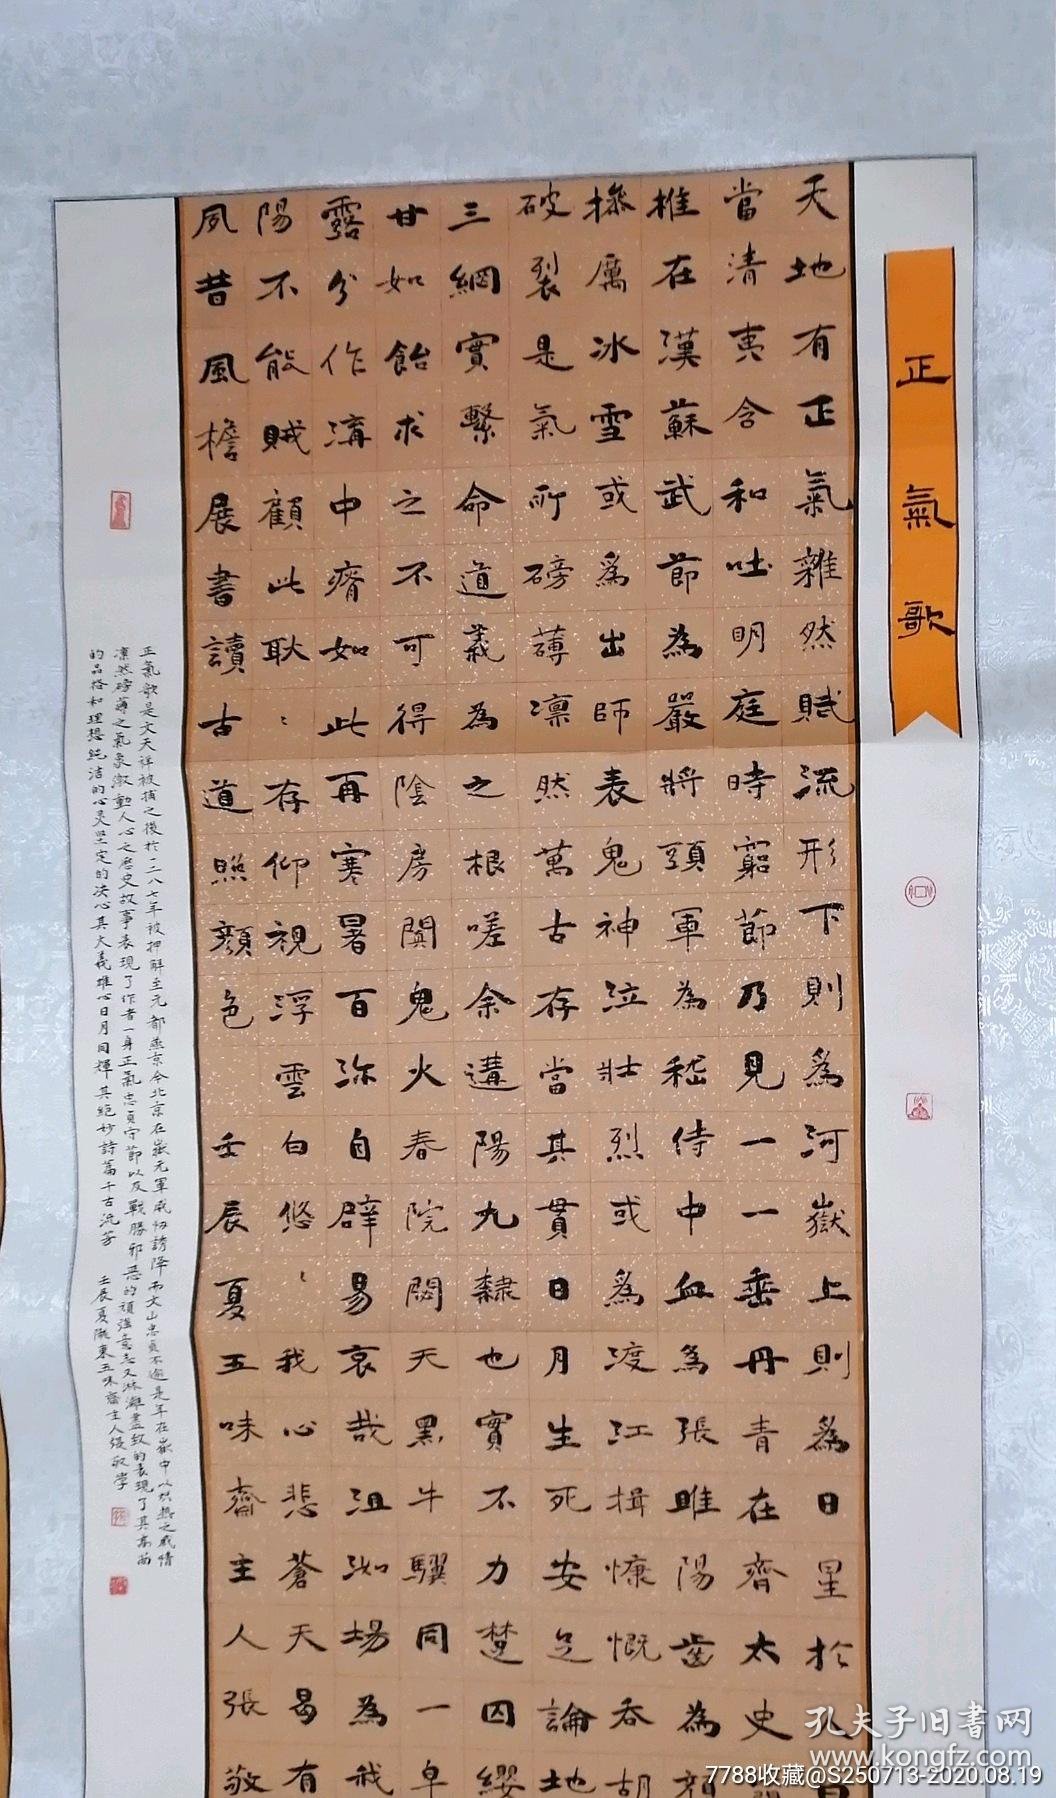 正氣歌
天地有正氣雜然賦流形下則為河嶽上則為日星於人曰
當清夷含和吐明庭時窮節乃見一一垂丹青在齊太史
椎在漢蘇武節為嚴將頭軍為嵇侍中血為張睢陽齒為顏
操厲冰雪或為出師表鬼神泣壯烈或為渡江楫慷慨吞胡
破裂是氣所磅礴凜然萬古存當其貫日月生死安足論地
三綱實繫命道義為之根嗟余遘陽九隸也實不力楚囚纓
甘如飴求之不可得陰房闃鬼火春院閟天黑牛驥同一皁
露分作溝中瘠如此再寒暑百沴自辟易哀哉沮洳場為我
陽不能賊顧此耿〻存仰視浮雲白悠〻我心悲蒼天曷有
夙昔風檐展書讀古道照顏色 壬辰夏五味齋主人張敬
正氣歌是文天祥被捕之後於一二八七年被押解至元都燕京今北京在嶽元軍威協誘降而文山忠貞不逾是年在嶽中以熾熱之感情
凜然磅薄之氣象激動人心之歷史故事表現了作者一身正氣忠貞守節以及戰勝邪惡的頑強意志又淋漓盡致的表現了其高尚
的品格和理想純洁的心灵堅定的决心其大義雄心日月同輝其絕妙詩篇千古流芳 壬辰夏隴東五味齋主人張敬學
孔夫子旧書网
www.kongfz.com
7788收藏@S250713-2020.08.19